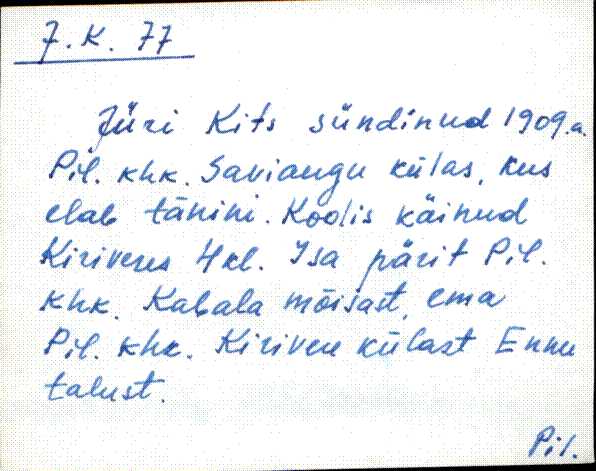 J.K. 77
Jüri Kits sündinud 1909.a.
Pil. khk. Saviaugu külas, kus
elab tänini. Koolis käinud
Kiriveres 4 kl. Isa pärit Pil.
khk. Kabala mõisast, ema
Pil. khk. Kirivere külast Ennu
talust.
Pil.